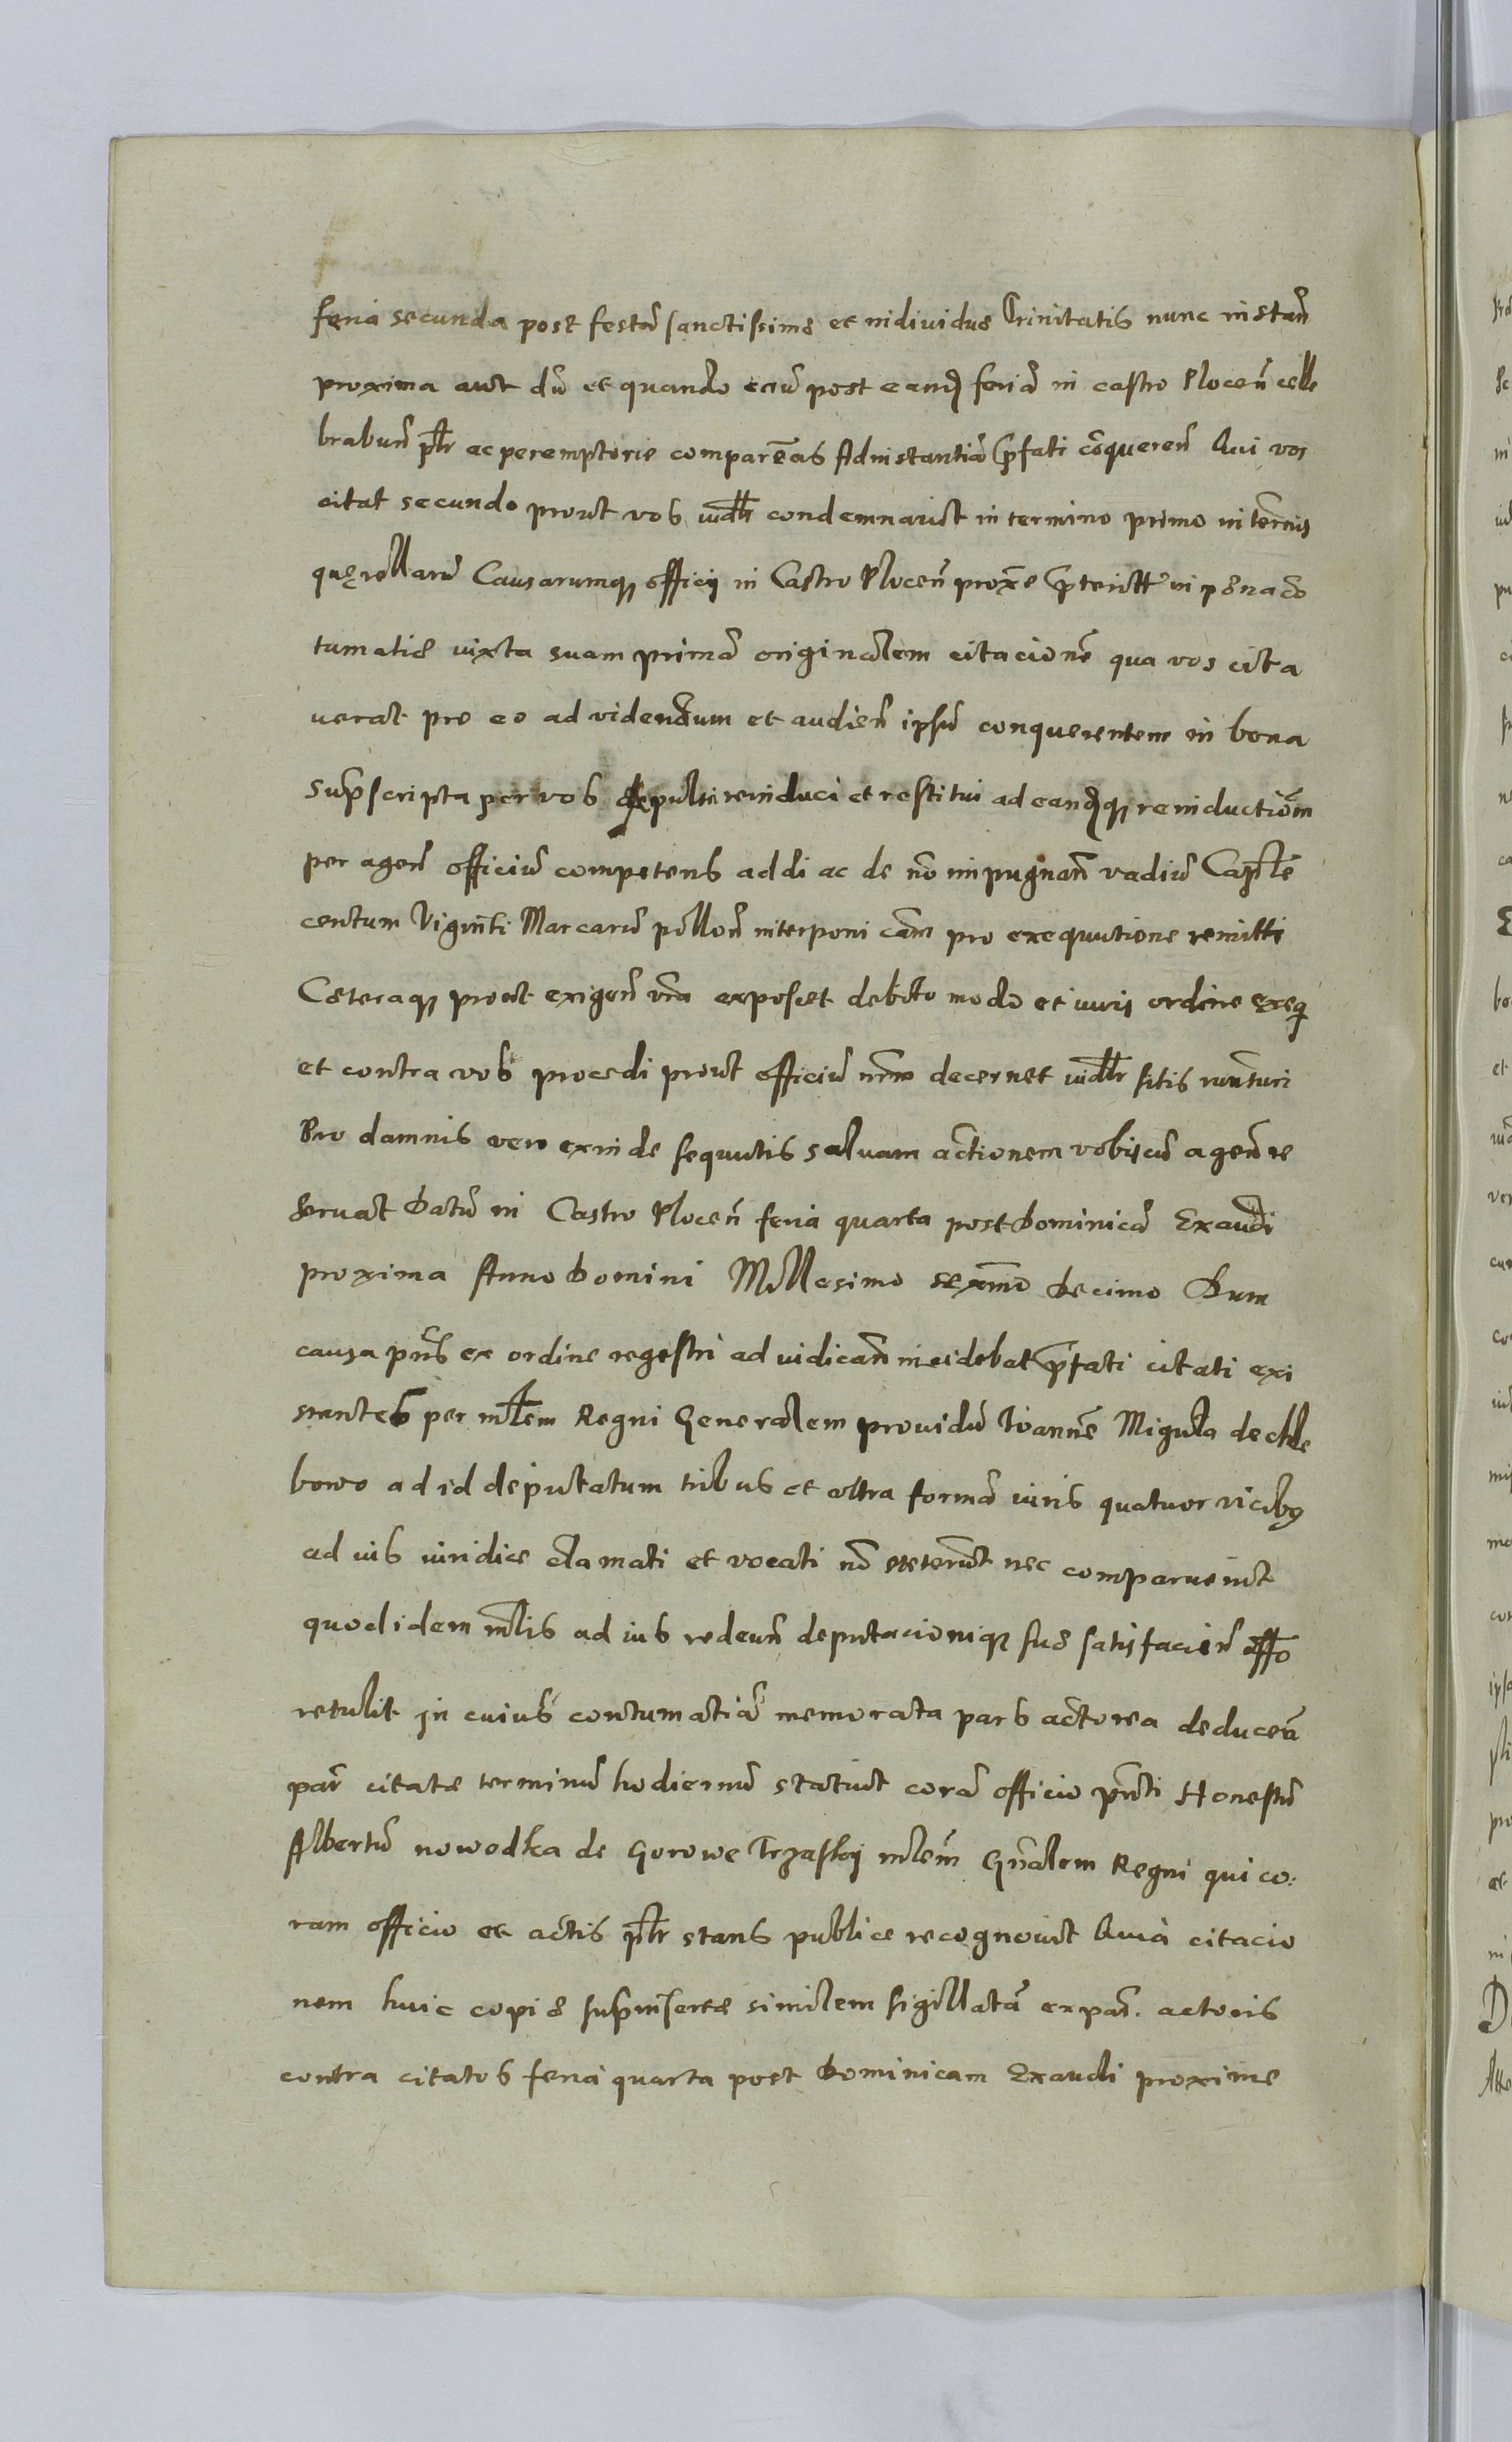 feria secunda post festū sanctissime et individue Trinitatis nunc instan̄
proxima aut dū et quando eciā post eand feriā in castro Plocen̄ cele
brabun̄ ptr ac peremptorie compareatis Ad instantiā p̄fati cōqueren̄ Qui vos
citat secundo prout vos iudltr condemnavit in termino primo in termīs
querellarū Causarumq officij in Castro Plocen̄ proxe p̄terittis in pena cō
tumatie iuxta suam primā originalem citacionē qua vos cita
uerat pro eo ad videndum et audien̄ ipsū conquerentem in bona
sup̄scripta per vos depulsi reinduci et restitui ad eandq reinductiōm
per agen̄ officiū competens addi ac de nō impugnan̄ vadiū Capitle
centum Viginti Marcarū pollon̄ interponi cām pro exequutione remitti
Ceteraq prout exigen̄ vīa exposcet debito modo et iuris ordine exeq
et contra vos procedi prout officiū nrm̄ decernet iudltr sitis rūnturi
Pro damnis vero exinde sequutis salvam actionem vobiscū agen̄ re
servat Datū in Castro Plocen̄ feria quarta post Dominicā Exaudi
proxima Anno Domini Millesimo sexmō Decimo Dum
causa pn̄s ex ordine regestri ad iudican̄ incidebat p̄fati citati exi
stentes per mltem Regni Generalem providū Ioannē Migula de Chle
bowo ad id deputatum tribus et ultra formā iuris quatuor vicibq
ad ius iuridice clamati et vocati nō steterunt nec comparuerunt
quod idem mltis ad ius redeun̄ deputacioniq sue satisfacien̄ offo
retulit In cuius contumatiā memorata pars actorea deducen̄
par citate terminū hodiernū statuit corā officio pn̄ti Honestū
Albertū nowodka de Gorowe Trzaski mltem Gn̄alem Regni qui co:
ram officio et actis ptr stans publice recognovit Quia citacio
nem huic copie sup̄insertae similem sigillatā ex par̄. actoris
contra citatos feria quarta post Dominicam Exaudi proxime